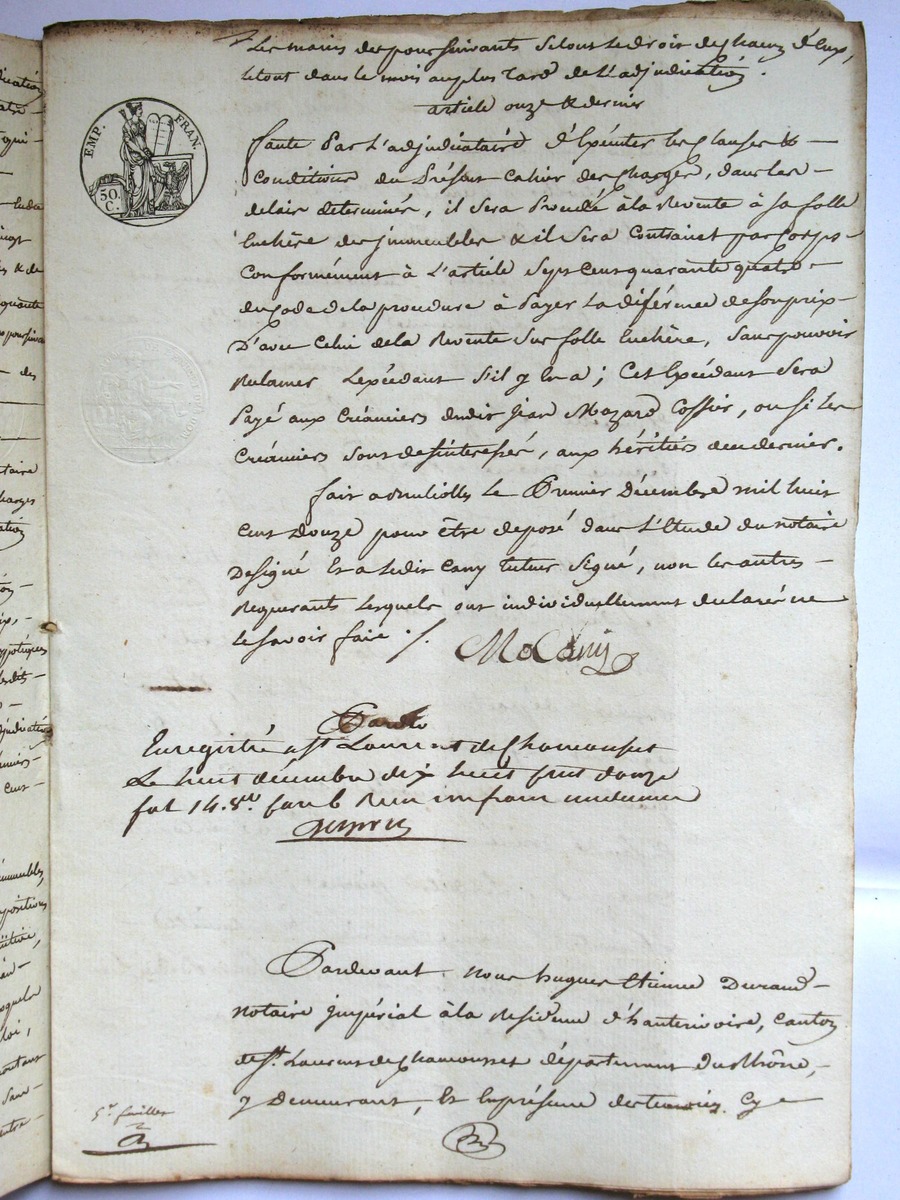 Les mains des poursuivants selon le droit de chacun d'eux,
le tout dans le mois au plus tard de l'adjudication.
article onze & dernier
EMP. FRAN.
50. C.
faute Par L'adjudicataire d'Exécuter les Clauses &
Conditions du Présent Cahier des Charges, dans les
delais determinés, il sera Procédé à la Revente à sa folle
Enchère des jmmeubles & il sera Contraint par Corps
Conformément à L'article Sept Cent quarante quatre
du Code de la procedure à Payer la différence de son prix
D'avec Celui de la Revente sur folle Enchère, Sans pouvoir
Réclamer L'excédant s'il y En a ; Cet Excédant Sera
Payé aux Créanciers dudit jean Mazard Cossier, ou si les
Créanciers sont desintéressés, aux héritiers de ce dernier.
fait à le Premier Décembre mil huit
Cent Douze pour être deposé dans L'Etude du notaire
Designé Et a ledit Cany tuteur Signé, non les autres
Requerants lesquels ont individuellement declaré ne
le savoir faire ./.
Enregistré a St Laurent de Chamousset
Le huit décembre dix huit cent douze
fol 14. Reçu un franc
Pardevant nous hugues Etienne Durand
notaire jmpérial à la Résidence d'hauterivoire, Canton
de St. Laurent de Chamousset département du Rhône,
y Demeurant, Et En présence des temoins Cy
5e. feuillet